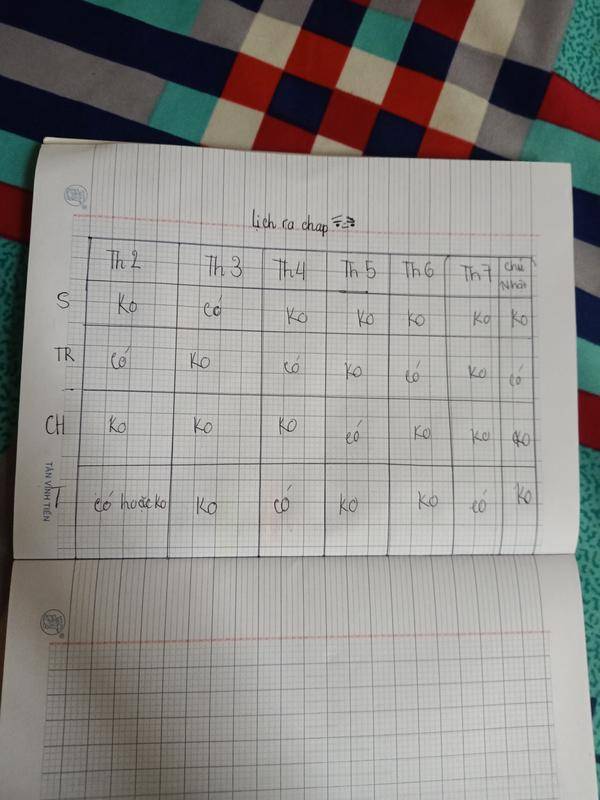 Lịch ra chap
Th2 Th3 Th4 Th5 Th6 Th7 Chủ Nhật
S Ko có Ko Ko Ko Ko Ko
TR có Ko có Ko có Ko có
CH Ko Ko Ko có Ko Ko Ko
T có hoặc ko Ko có Ko Ko có Ko
TÂN VĨNH TIẾN